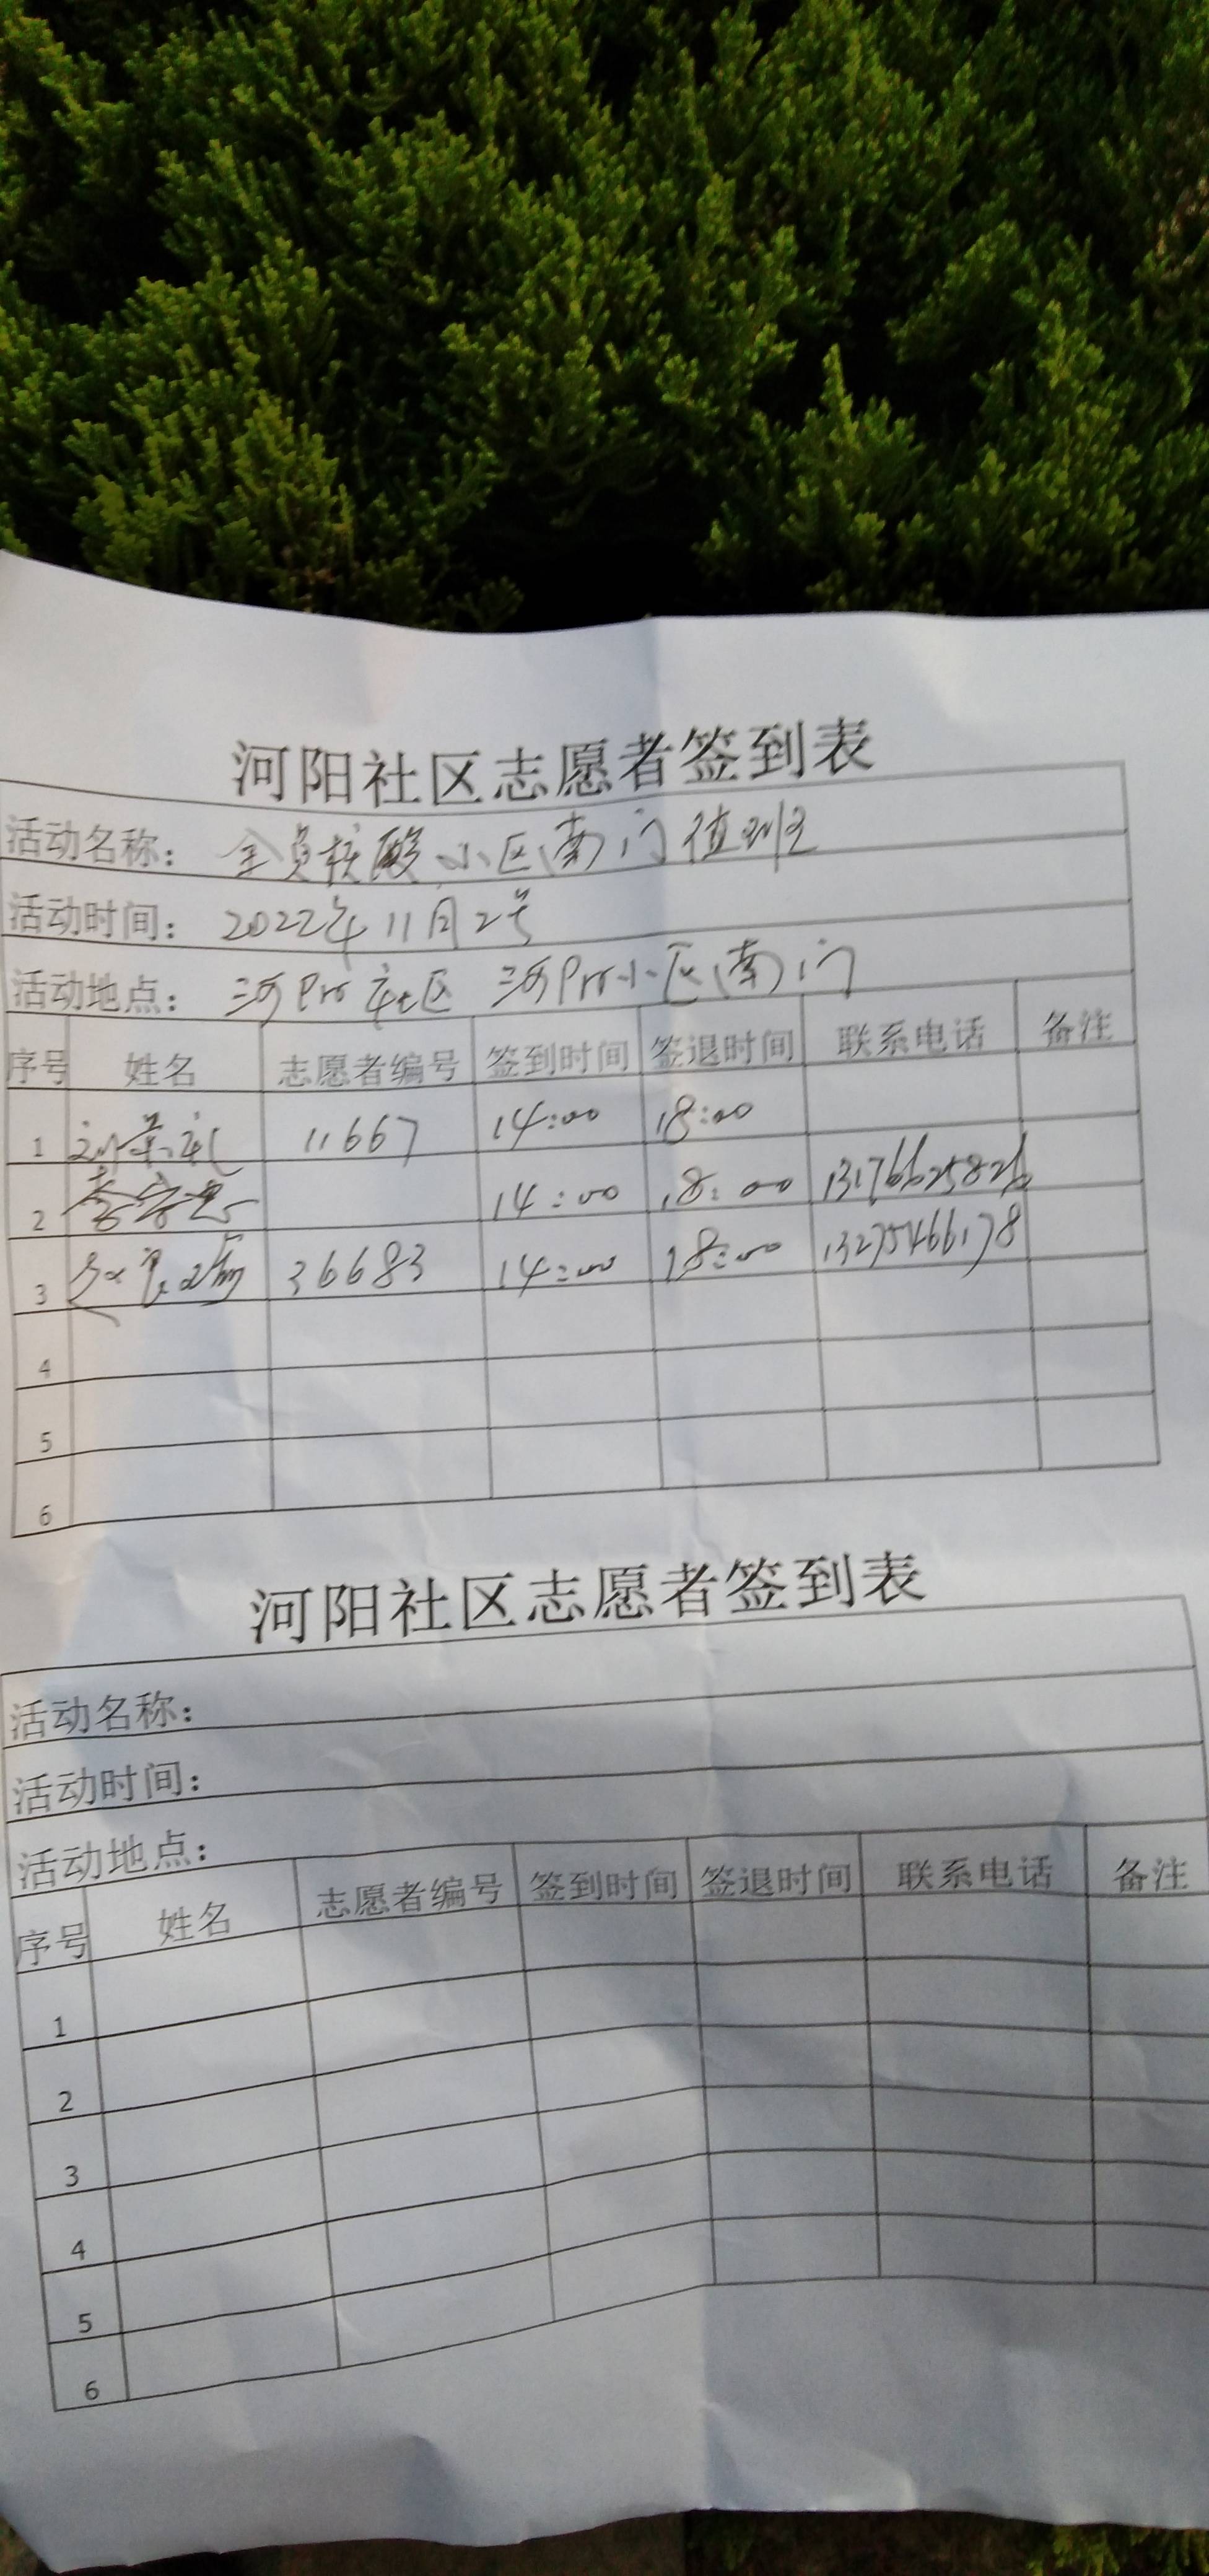 河阳社区志愿者签到表
活动名称: 全员核酸小区南门值班
活动时间: 2022年11月2号
活动地点: 河阳社区 河阳小区南门
序号 姓名 志愿者编号 签到时间 签退时间 联系电话 备注
1 11667 14:00 18:00
2 14:00 18:00 13176625826
3 36683 14:00 18:00 13275466178
4
5
6
河阳社区志愿者签到表
活动名称:
活动时间:
活动地点:
序号 姓名 志愿者编号 签到时间 签退时间 联系电话 备注
1
2
3
4
5
6